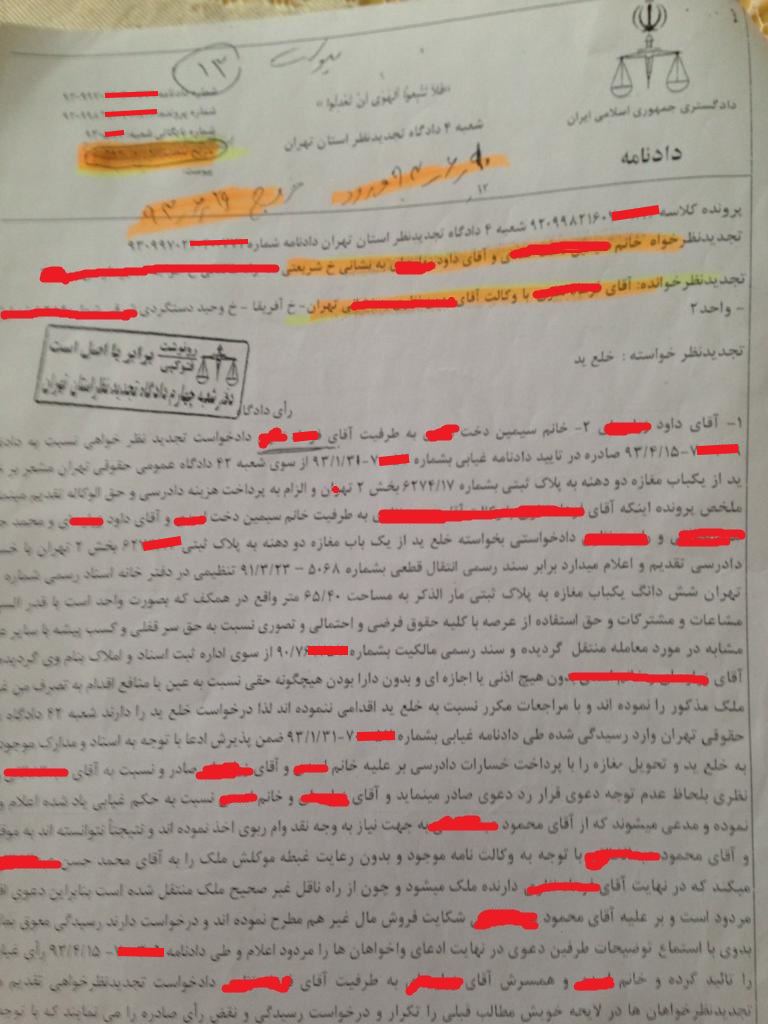 ۱۳
پیوست
شماره دادنامه: ۹۳۰۹۹۷۰
شماره پرونده: ۹۳۰۹۹۸
شماره بایگانی شعبه: ۹۳۰
پیوست:
«فَلا تَتَّبِعُوا الْهَوی اَنْ تَعْدِلُوا»
شعبه ۴ دادگاه تجدیدنظر استان تهران
دادگستری جمهوری اسلامی ایران
دادنامه
ورود
خروج
پرونده کلاسه ۹۲۰۹۹۸۲۱۶۰۹ شعبه ۴ دادگاه تجدیدنظر استان تهران دادنامه شماره ۹۳۰۹۹۷۰۲
تجدیدنظرخواه خانم و آقای داود به نشانی خ شریعتی
تجدیدنظرخوانده: آقای با وکالت آقای تهران - خ آفریقا - خ وحید دستگردی
- واحد۲
تجدیدنظر خواسته : خلع ید
رونوشت فتوکپی برابر با اصل است
دفتر شعبه چهارم دادگاه تجدید نظر استان تهران
رأی دادگاه
۱- آقای داود ۲- خانم سیمین دخت به طرفیت آقای دادخواست تجدید نظر خواهی نسبت به
۷-۹۳/۴/۱۵ صادره در تایید دادنامه غیابی بشماره ۷-۹۳/۱/۳۱ از سوی شعبه ۴۲ دادگاه عمومی حقوقی تهران مشعر بر
ید از یکباب مغازه دو دهنه به پلاک ثبتی بشماره ۶۲۷۴/۱۷ بخش ۲ تهران و الزام به پرداخت هزینه دادرسی و حق الوکاله تقدیم
ملخص پرونده اینکه آقای به طرفیت خانم سیمین دخت و آقای داود و محمد
و دادخواستی بخواسته خلع ید از یک باب مغازه دو دهنه به پلاک ثبتی ۶۲ بخش ۲ تهران با
دادرسی تقدیم و اعلام میدارد برابر سند رسمی انتقال قطعی بشماره ۵۰۶۸ - ۹۱/۳/۲۳ تنظیمی در دفتر خانه اسناد رسمی شماره
تهران شش دانگ یکباب مغازه به پلاک ثبتی مار الذکر به مساحت ۶۵/۴۰ متر واقع در همکف که بصورت واحد است با قدر
مشاعات و مشترکات و حق استفاده از عرصه با کلیه حقوق فرضی و احتمالی و تصوری نسبت به حق سر قفلی و کسب پیشه با سایر
مشابه در مورد معامله منتقل گردیده و سند رسمی مالکیت بشماره ۹۰/۷۶ از سوی اداره ثبت اسناد و املاک بنام وی
آقای بدون هیچ اذنی یا اجازه ای و بدون دارا بودن هیچگونه حقی نسبت به عین یا منافع اقدام به تصرف
ملک مذکور را نموده اند و با مراجعات مکرر نسبت به خلع ید اقدامی ننموده اند لذا درخواست خلع ید را دارند شعبه ۴۲ دادگاه
حقوقی تهران وارد رسیدگی شده طی دادنامه غیابی بشماره ۷-۹۳/۱/۳۱ ضمن پذیرش ادعا با توجه به اسناد و مدارک موجود
به خلع ید و تحویل مغازه را با پرداخت خسارات دادرسی بر علیه خانم و آقای صادر و نسبت به آقای
نظری بلحاظ عدم توجه دعوی قرار رد دعوی صادر مینماید و آقای و خانم نسبت به حکم غیابی یاد شده اعلام
نموده و مدعی میشوند که از آقای محمود به جهت نیاز به وجه نقد وام ربوی اخذ نموده اند و نتیجتاً نتوانسته اند به
و آقای محمود با توجه به وکالت نامه موجود و بدون رعایت غبطه موکلش ملک را به آقای محمد حسن
میکند که در نهایت آقای دارنده ملک میشود و چون از راه ناقل غیر صحیح ملک منتقل شده است بنابراین دعوی
مردود است و بر علیه آقای محمود شکایت فروش مال غیر هم مطرح نموده اند و درخواست دارند رسیدگی معوق
بدوی با استماع توضیحات طرفین دعوی در نهایت ادعای واخواهان ها را مردود اعلام و طی دادنامه ۹۳/۴/۱۵ رأی
را تائید کرده و خانم و همسرش آقای به طرفیت آقای دادخواست تجدیدنظرخواهی تقدیم
تجدیدنظرخواهان ها در لایحه خویش مطالب قبلی را تکرار و درخواست رسیدگی و نقض رأی صادره را می نمایند که با